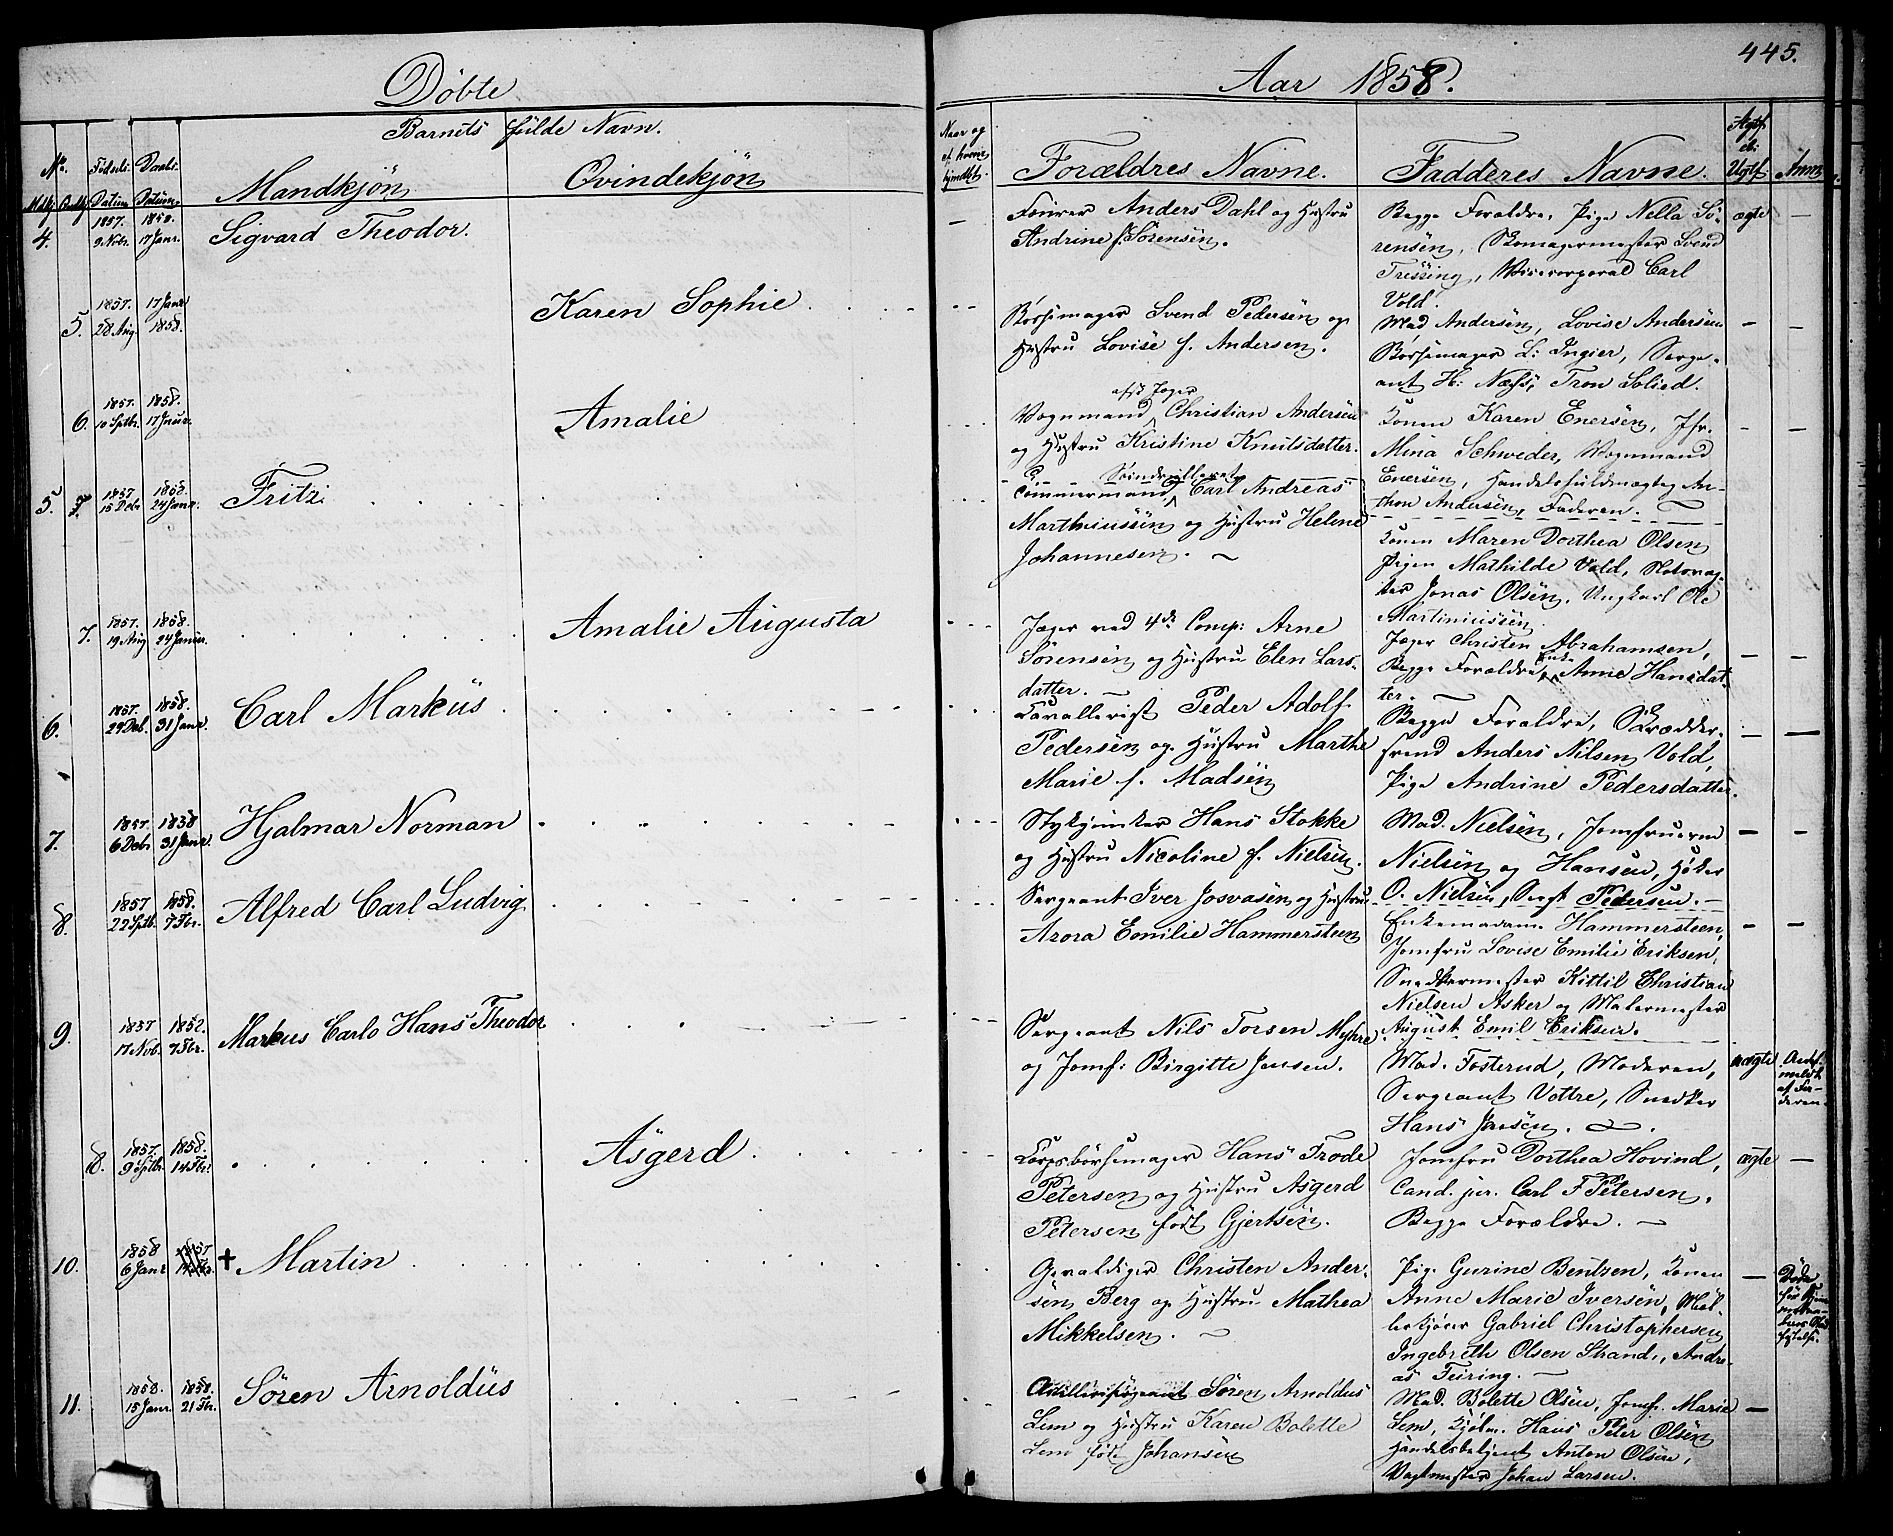 445.
Döbte
Aar 1858.
Barnets fulde Navn.
No.
Födsels
Daabs
Datum
Datum
Mandkjön
Qvindekjön
Naar og
af hvem
hjemdöbt.
Forældres Navne.
Fadderes Navne.
Ægtf.
el.
Uægtf.
Anm.
4. 1857. 9. Nobr. 1858. 17 Janr. Sigvard Theodor.
Fourer Anders Dahl og Hustru
Andrine f. Sörensen.
Begge Forældre, Pige Nella Sö-
rensen, Skomagermester Svend
Tressing, Vicecorporal Carl
Vold.
ægte
5. 1857. 28 Aug. 17 Janr 1858. Karen Sophie
Börsemager Svend Pedersen og
Hustru Lovise f. Andersen.
Mad Andersen, Lovise Andersen
Börsemager L: Ingier, Serge-
ant H: Næss, Tron Solied.
6. 1857. 10 Sptbr. 1858. 17 Janr. Amalie
afsk Jæger
Vognmand Christian Andersen
og Hustru Kristine Knutsdatter.
Konen Karen Enersen, Jfr.
Mina Schweder, Vognmand
Enersen, Handelsfuldmægtig An-
thon Andersen, Faderen.
5 1857 15 Debr 1858. 24 Janr. Fritz
Tömmermand Carl Andreas
Marthiniussen og Hustru Helene
Johannesen.
Konen Maren Dorthea Olsen
Pigen Mathilde Vold,
Jonas Olsen. Ungkarl Ole
Martiniussen.
7. 1857. 19 Aug 1858. 24 Januar. Amalie Augusta
Jæger ved 4de Comp: Arne
Sörensen og Hustru Elen Lars-
datter.
Jæger Christen Abrahamsen,
Begge Forældre, Enke Anne Hansdat-
ter.
6. 1857. 29 Deb. 1858. 31 Janr. Carl Markus
Cavallerist Peder Adolf
Pedersen og Hustru Marthe
Marie f. Madsen
Begge Forældre, Skrædder-
svend Anders Nilsen Vold,
Pige Andrine Pedersdatter.
7. 1857. 6 Debr 1858 31 Janr. Hjalmar Norman
Stykjunker Hans Stokke
og Hustru Nicoline f. Nielsen.
Mad. Nielsen, Jomfruerne
Nielsen og Hansen, Höker
O. Nielsen, Sergt Pedersen.
8. 1857 22 Sptb. 1858. 7 Fbr. Alfred Carl Ludvig
Sergeant Iver Josvasen og Hustru
Arora Emilie Hammersteen
Enkemadam Hammersteen,
Jomfru Lovise Emilie Eriksen,
Snedkermester Kittil Christian
Nielsen Asker og Malermester
August Emil Eriksen.
9. 1857 17 Nob. 1858. 7 Fbr. Markus Carlo Hans Theodor
Sergeant Nils Torsen Myhre
og Jomf: Birgitte Jensen.
Mad. Fosterud, Moderen,
Sergeant Vottre, Snedker
Hans Jensen.
uægte
Anmeldt
af Fa-
deren.
8. 1857. 9 Sptbr. 1858. 14 Fbr. Asgerd
Corpsbörsemager Hans Frode
Petersen og Hustru Asgerd
Petersen född Gjertsen.
Jomfru Dorthea Hovind,
Cand. jur. Carl F Petersen.
Begge Forældre.
ægte
10. 1858 6 Janr + Martin
Gevaldiger Christen Ander-
sen Berg og Hustru Mathea
Mikkelsen.
Pige Gurine Bentzen, Konen
Anne Marie Iversen, Möl-
lerkjörer Gabriel Christophersen
Ingebreth Olsen Strand, Andre-
as Teiring.
Döde
11. 1858. 15 Janr. 1858. 21 Fbr. Sören Arnoldus
Sören Arnoldus
Lem og Hustru Karen Bolette
Lem föd Johansen
Mad. Bolette Olsen, Jomf. Marie
Lem, Kjöbm. Hans Peter Olsen
Handelsbetjent Anton Olsen,
Vagtmester Johan Larsen.